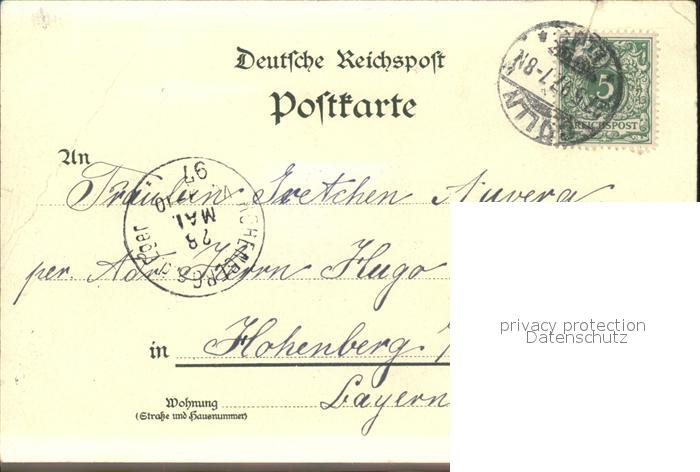 Deutsche Reichspost
Postkarte
5
REICHSPOST
7-8N
An
Fräulein Gretchen Auvera
HOHENBERG a. d. Eger
28
MAI
97
per. Adr. Herrn Hugo
in Hohenberg
Bayern
Wohnung
(Straße und Hausnummer)
privacy protection
Datenschutz